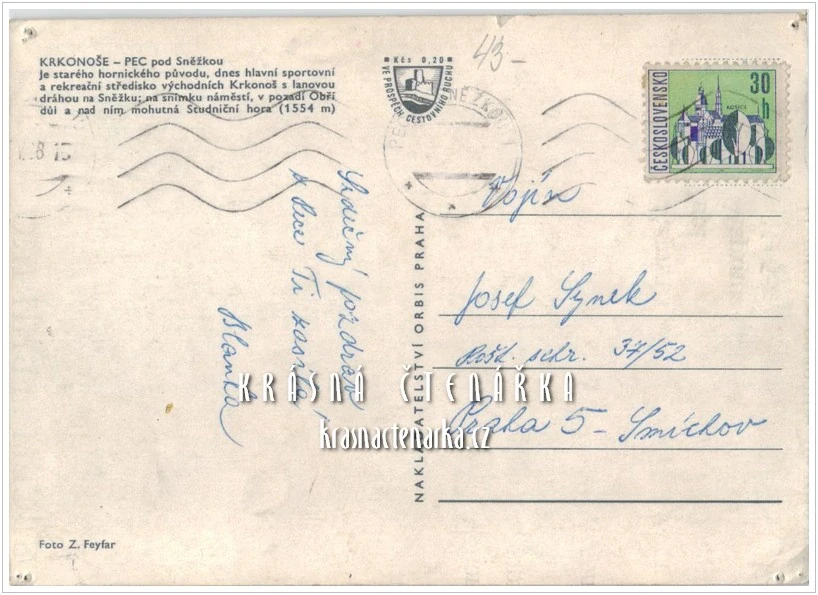 KRKONOŠE – PEC pod Sněžkou
Je starého hornického původu, dnes hlavní sportovní
a rekreační středisko východních Krkonoš s lanovou
dráhou na Sněžku; na snímku náměstí, v pozadí Obří
důl a nad ním mohutná Studniční hora (1554 m)
Kčs 0,20
VE PROSPĚCH CESTOVNÍHO RUCHU
43-
ČESKOSLOVENSKO
30 h
KOŠICE
PEC SNĚŽKOU
8 75
Srdečný pozdrav
z Pece Ti zasílá
Blanka
NAKLADATELSTVÍ ORBIS PRAHA
Vojín
Josef Synek
Pošt. schr. 37/52
Praha 5 - Smíchov
KRÁSNÁ ČTENÁŘKA
krasnactenarka.cz
Foto Z. Feyfar